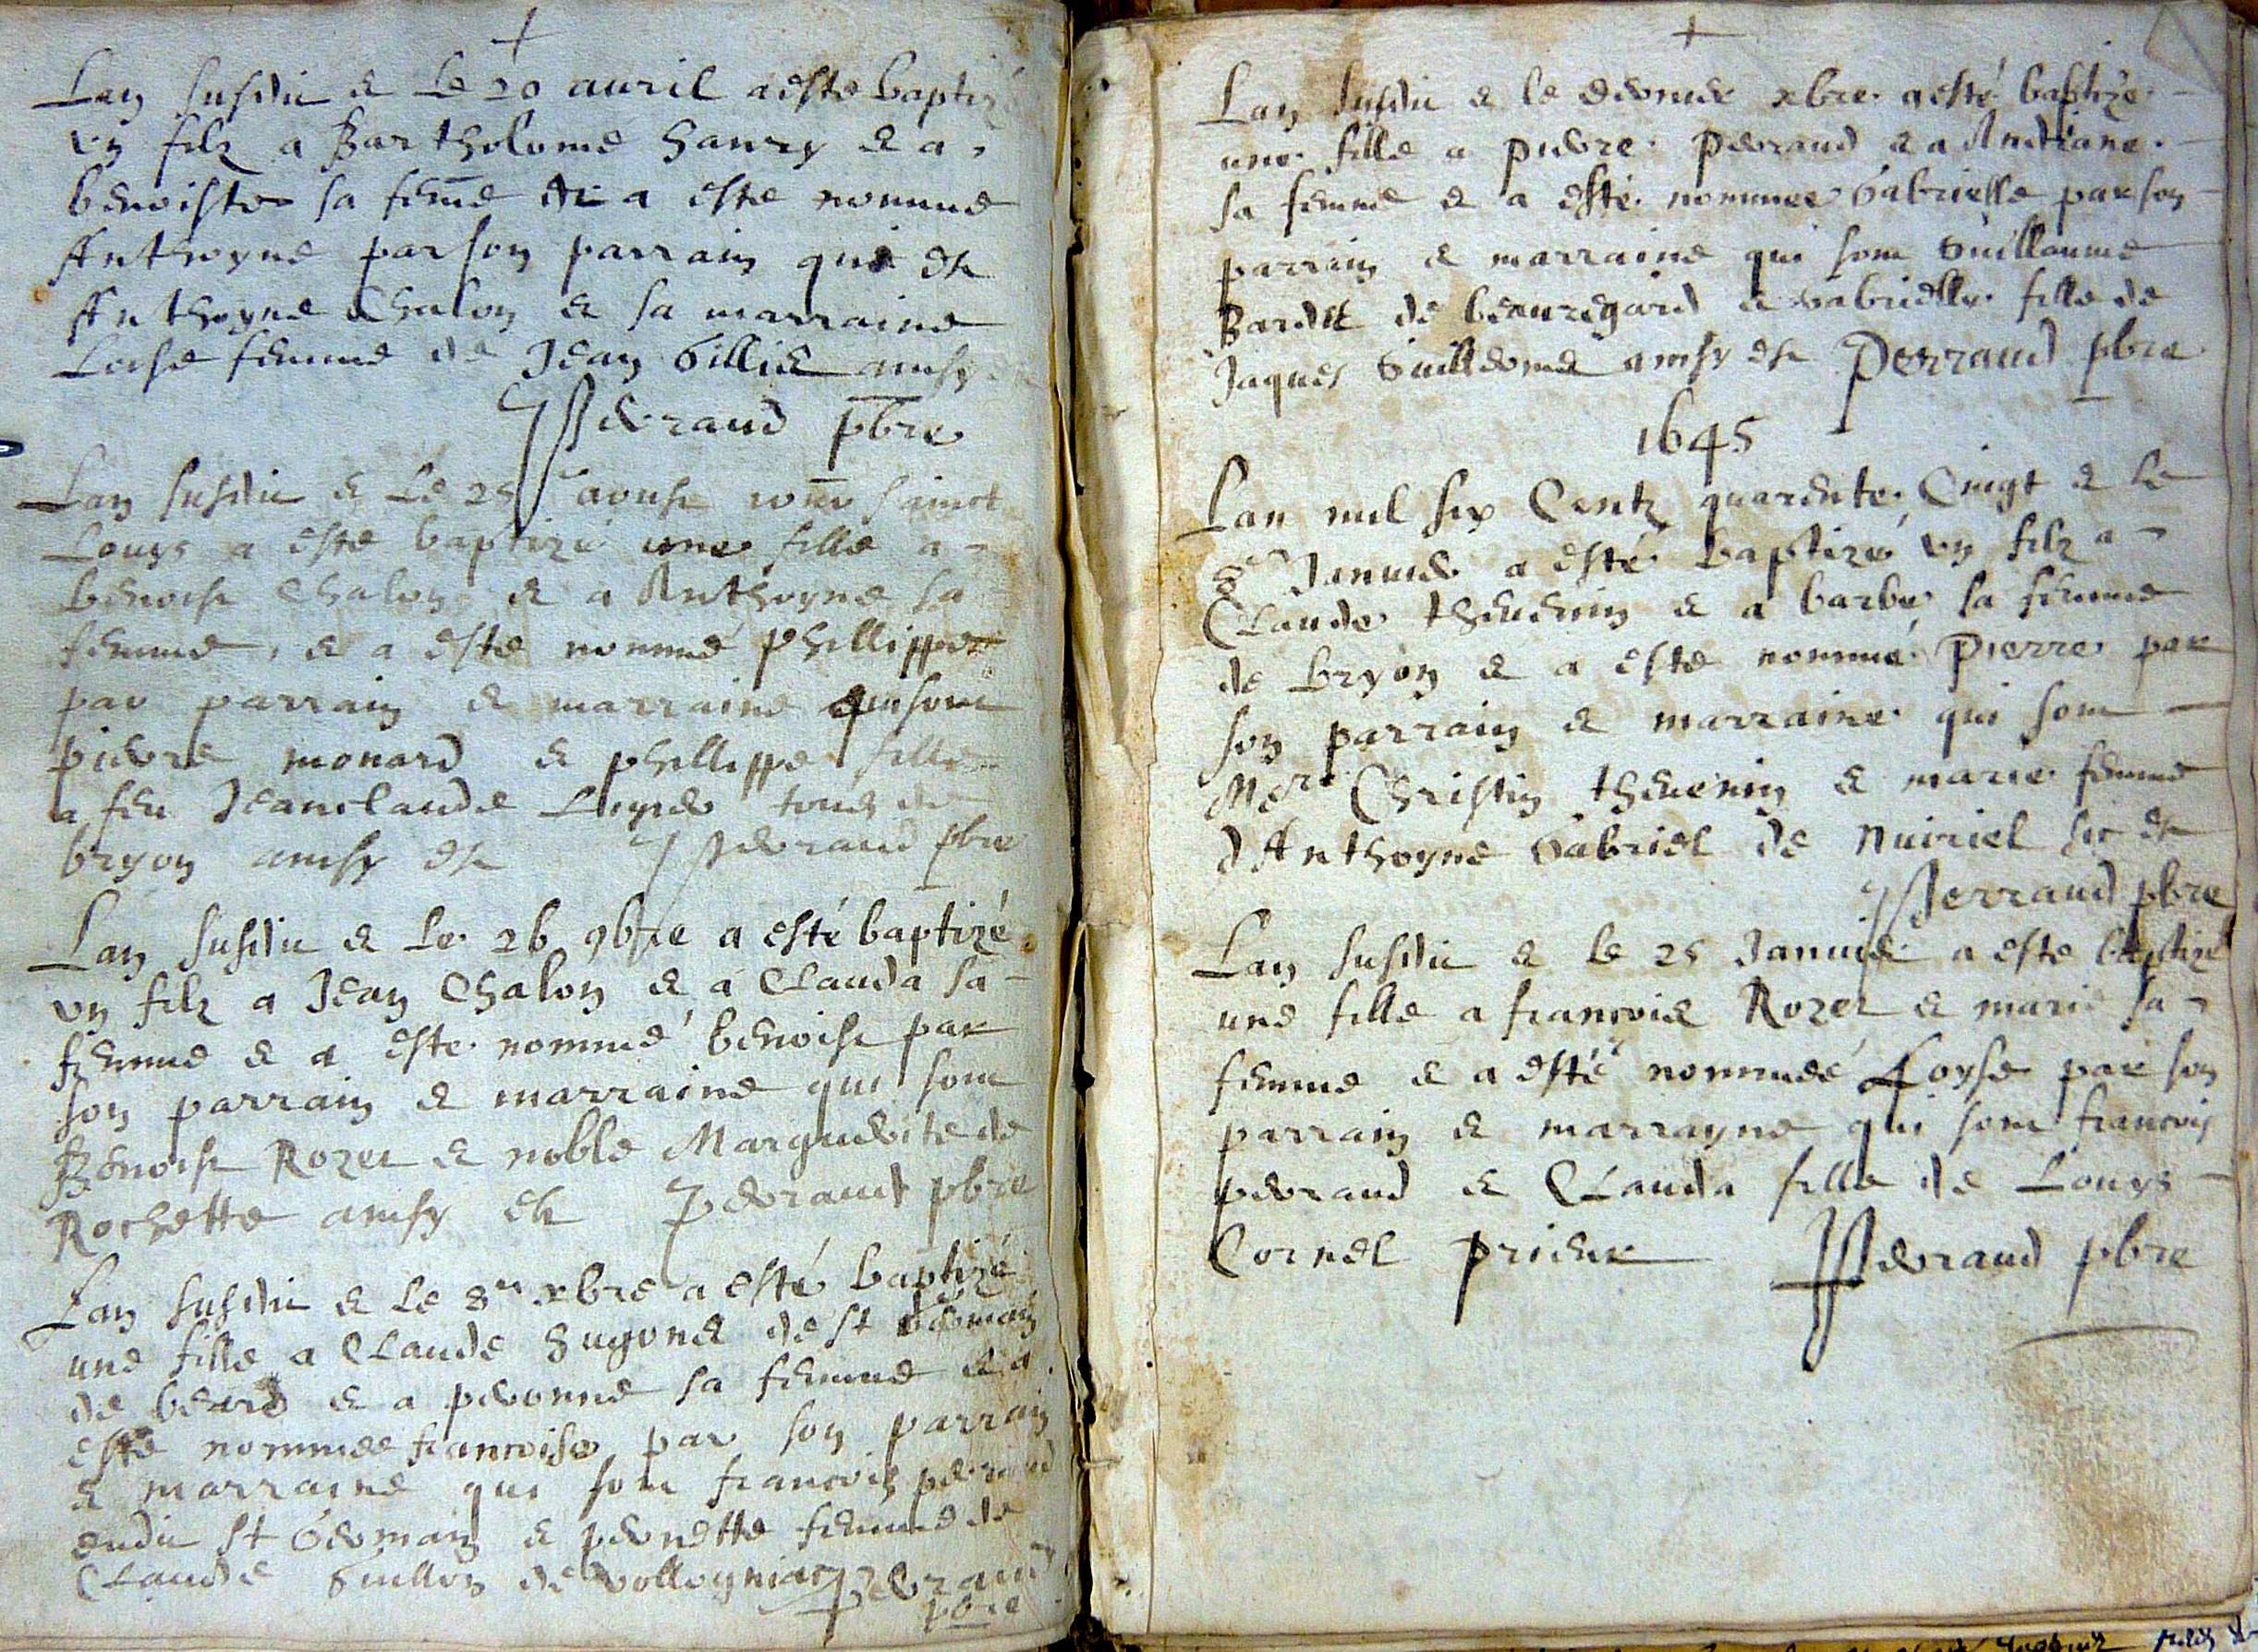 Lan susdit & Le 20 auril a esté baptizé
vn filz a Bartholome hanry & a
benoiste sa feme & a este nommé
Anthoyne par son parrain qui est
Anthoyne Chalon & sa marraine
Loise femme de Jean Gillie ainsy
Perraud pbre
Lan susdit & Le 25 aoust Jour sainct
Louys a este baptizé une fille a
benoist Chalon & a Anthoyne sa
femme, & a este nommé phillippe
par parrain & marraine qui sont
pierre monard & phillippe fille
a feu Jeanclaude tous de
bryon ainsy est Perraud pbre
Lan susdit & Le 26 9bre a esté baptizé
vn filz a Jean Chalon & a Clauda sa
femme & a este nommé benoist par
son parrain & marraine qui sont
Benoist Rozet & noble Marguerite de
Rochette ainsy est perraud pbre
Lan susdit & Le 8 xbre a esté baptizé
une fille a Claude hugone de st Germain
de beard & a peronne sa femme & a
esté nommee francoise par son parrain
& marraine qui sont francois perraud
dudit st Germain & pernette femme de
Claude Guillon de vollogniat Perraud
pbre
Lan susdit & le dernier xbre a esté baptize
une fille a pierre perraud & a Andriane
sa femme & a esté nommee Gabrielle par son
parrain & marraine qui sont Guillaume
Bardet de beauregard & Gabrielle fille de
Jaques Guillerme ainsy est Perraud pbre
1645
Lan mil six Centz quarente Cinqt & le
8e Januier a esté baptizé vn filz a
Claude theuenin & a barbe sa femme
de bryon & a este nommé pierre par
son parrain & marraine qui sont
Mre Christin theuenin & marie femme
dAnthoyne Gabriel de Nuiriel sic est
Perraud pbre
Lan susdit & le 25 Januier a este baptizé
une fille a francois Rozet & marie sa
femme & a esté nommeé Loyse par son
parrain & marrayne qui sont francois
perraud & Clauda fille de Louys
Cornel prieur Perraud pbre